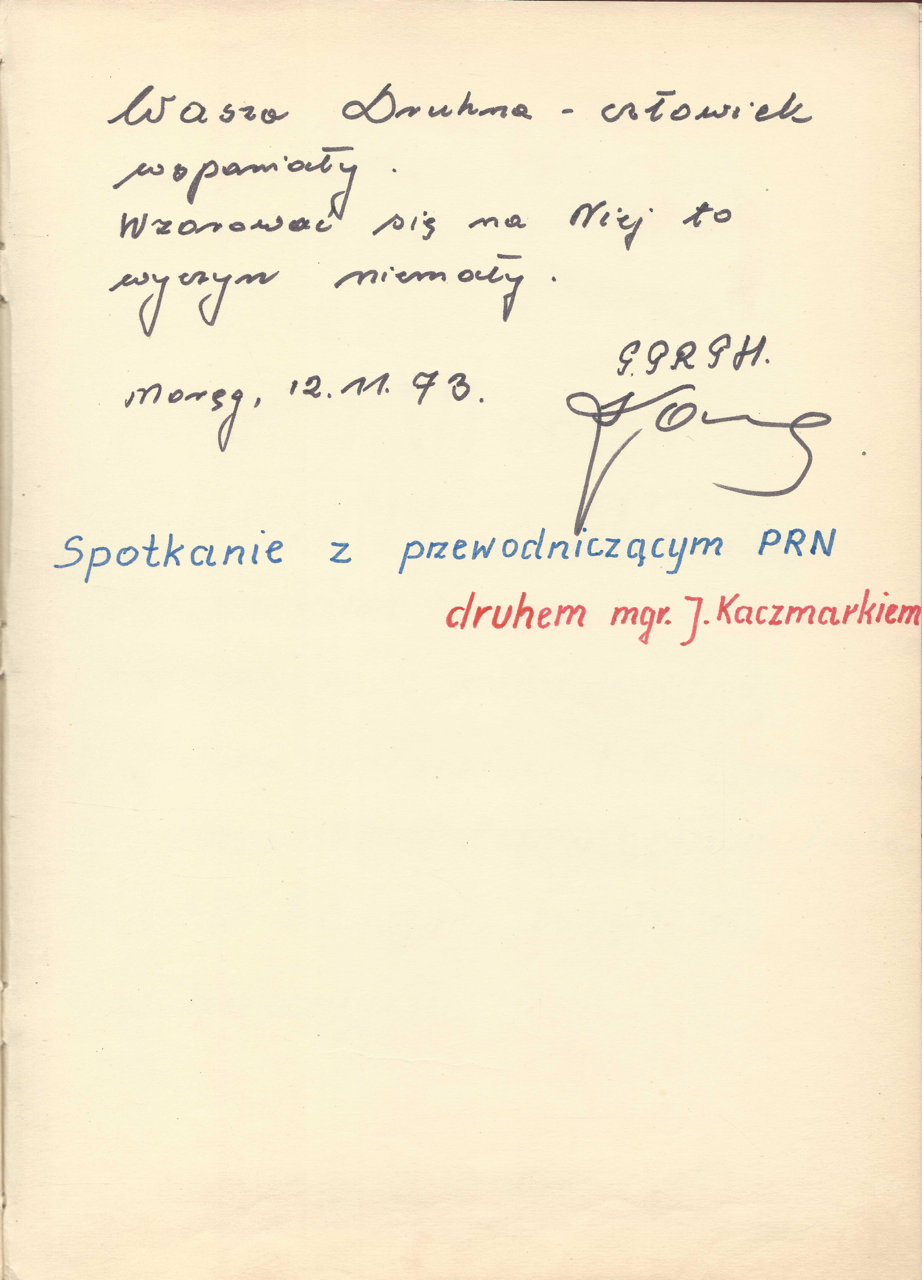 Wasza Druhna - człowiek
wspaniały.
Wzorować się na Niej to
wyczyn niemały.
P.PRGH.
Morąg, 12.11.73.
Spotkanie z przewodniczącym PRN
druhem mgr. J. Kaczmarkiem